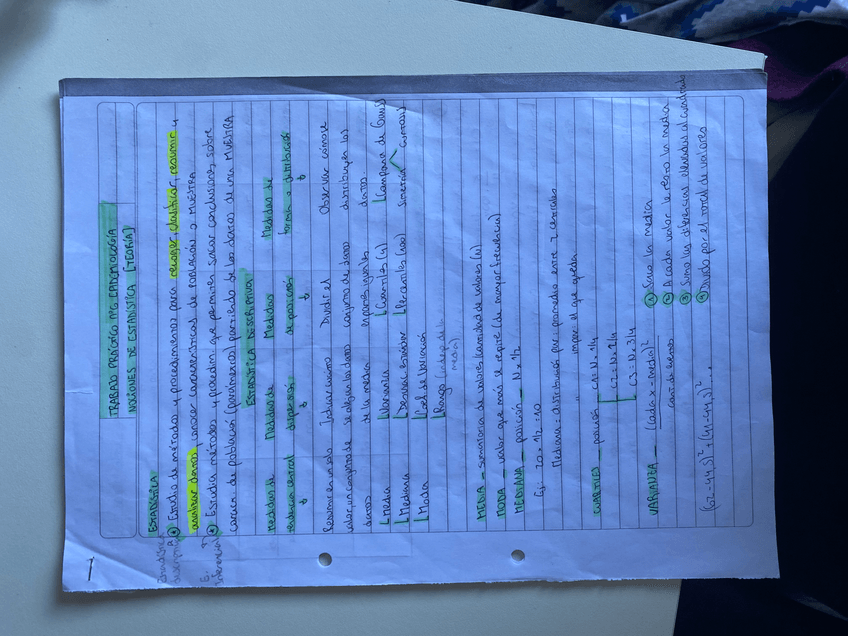 TRABAJO PRÁCTICO Nº6 EPIDEMIOLOGÍA
NOCIONES DE ESTADÍSTICA [TEORÍA]
ESTADÍSTICA
Estudio de métodos y procedimientos para recoger, clasificar, resumir y
analizar datos, conocer características de población o MUESTRA
Estudia métodos y proced. que permiten sacar conclusiones sobre
caract. de población (parámetros) partiendo de los datos de una MUESTRA
ESTADÍSTICA DESCRIPTIVA
Medidas de Medidas de Medidas Medidas de
tendencia central dispersión de posición forma o distribución
Resumir en un solo Indicar cuanto Dividir el Observar cómo se
valor, un conjunto de se alejan los datos conjunto de datos distribuyen los
datos de la media en partes iguales datos
Media Varianza Cuartiles (4) Campana de Gauss
Mediana Desvío estándar Percentiles (100) Simetría Curtosis
Moda Coef. de Variación
Rango (indep de la
media)
MEDIA - sumatoria de valores/cantidad de valores (N)
MODA - valor que más se repite (de mayor frecuencia)
MEDIANA - posición - N × 1/2
Ej: 20 × 1/2 = 10
Mediana = distribución par: promedio entre 2 centrales
" impar: el que queda
CUARTILES - posición C1 = N × 1/4
C2 = N × 2/4
C3 = N × 3/4
VARIANZA - (cada x - media)²
cant. de
① Saco la media
② A cada valor le resto la media
③ Sumo las diferencias elevadas al cuadrado
④ Divido por el total de valores
(62-44,5)² + (41-44,5)² ...